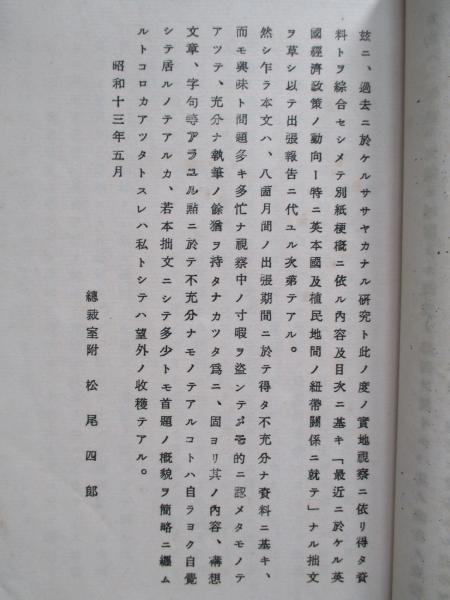 玆ニ、過去ニ於ケルササヤカナル硏究ト此ノ度ノ實地視察ニ依リ得タ資
料トヲ綜合セシメテ別紙梗槪ニ依ル內容及目次ニ基キ「最近ニ於ケル英
國經濟政策ノ動向ー特ニ英本國及植民地間ノ紐帶關係ニ就テ」ナル拙文
ヲ草シ以テ出張報告ニ代ユル次第テアル。
然シ乍ラ本文ハ、八箇月間ノ出張期間ニ於テ得タ不充分ナ資料ニ基キ、
而モ興味ト問題多キ多忙ナ視察中ノ寸暇ヲ盜ンテメモ的ニ認メタモノテ
アツテ、充分ナ執筆ノ餘猶ヲ持タナカツタ爲ニ、固ヨリ其ノ內容、構想
文章、字句等アラユル點ニ於テ不充分ナモノテアルコトハ自ラヨク自覺
シテ居ルノテアルカ、若本拙文ニシテ多少トモ首題ノ槪貌ヲ簡略ニ纒ム
ルトコロカアツタトスレハ私トシテハ望外ノ收穫テアル。
昭和十三年五月
總裁室附 松尾四郎